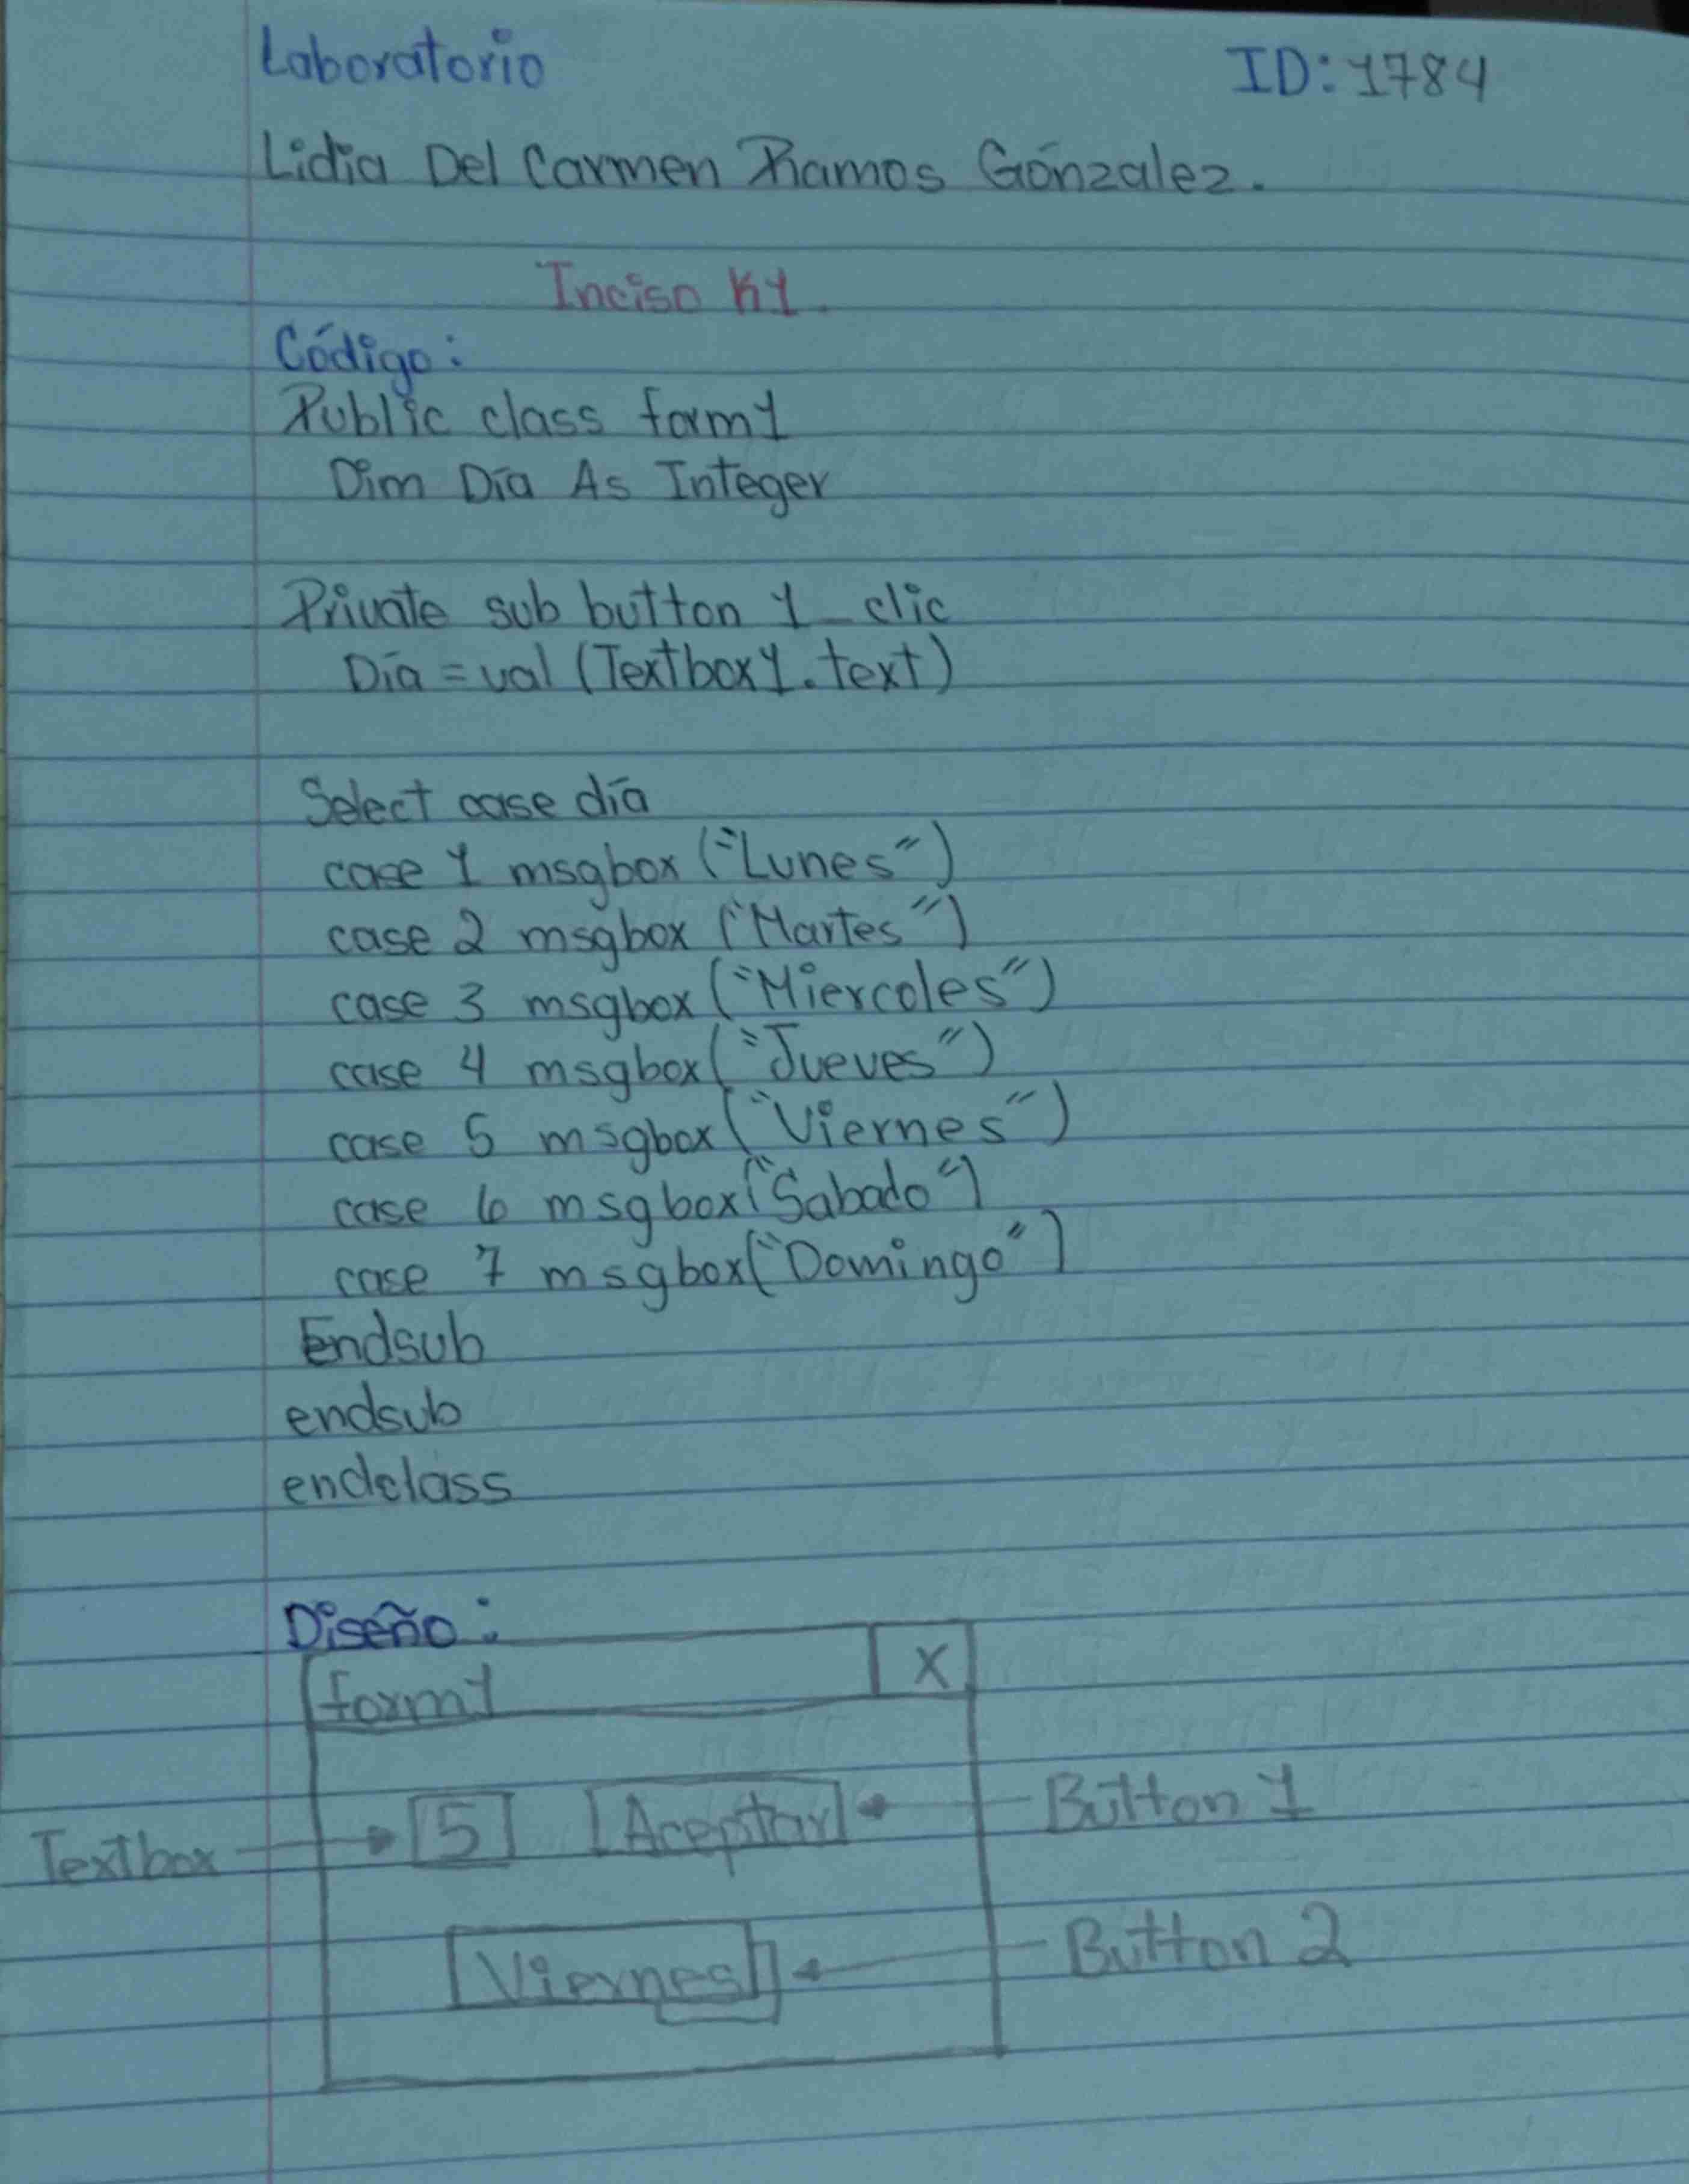 Laboratorio ID: 1784
Lidia Del Carmen Ramos Gónzalez.
Inciso K1.
Código:
Public class form1
Dim Día As Integer
Private sub button 1_clic
Día = val (Textbox1.text)
Select case día
case 1 msgbox ("Lunes")
case 2 msgbox ("Martes")
case 3 msgbox ("Miercoles")
case 4 msgbox ("Jueves")
case 5 msgbox ("Viernes")
case 6 msgbox ("Sabado")
case 7 msgbox ("Domingo")
Endsub
endsub
endclass
Diseño:
form1 X
Textbox 5 Aceptar Button 1
Viernes Button 2